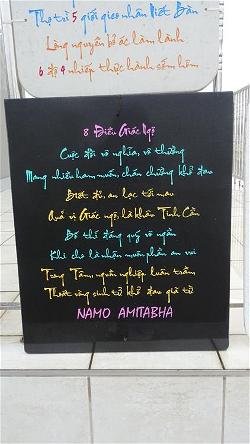 Thọ trì 5 giới gieo nhân Niết Bàn
Lòng nguyện bỏ ác làm lành
6 độ 4 nhiếp thực hành sớm hôm
8 Điều Giác Ngộ
Cuộc đời vô nghĩa, vô thường
Mang nhiều ham muốn, chán chường khổ đau
Biết đủ, an lạc tối màu
Quả vị Giác ngộ, là khâu Tinh Cần
Bố thí đáng quý vô ngần
Khi cho là nhận muôn phần an vui
Trung Tâm, nguồn nghiệp luân trầm
Thoát vòng sinh tử khổ đau
NAMO AMITABHA